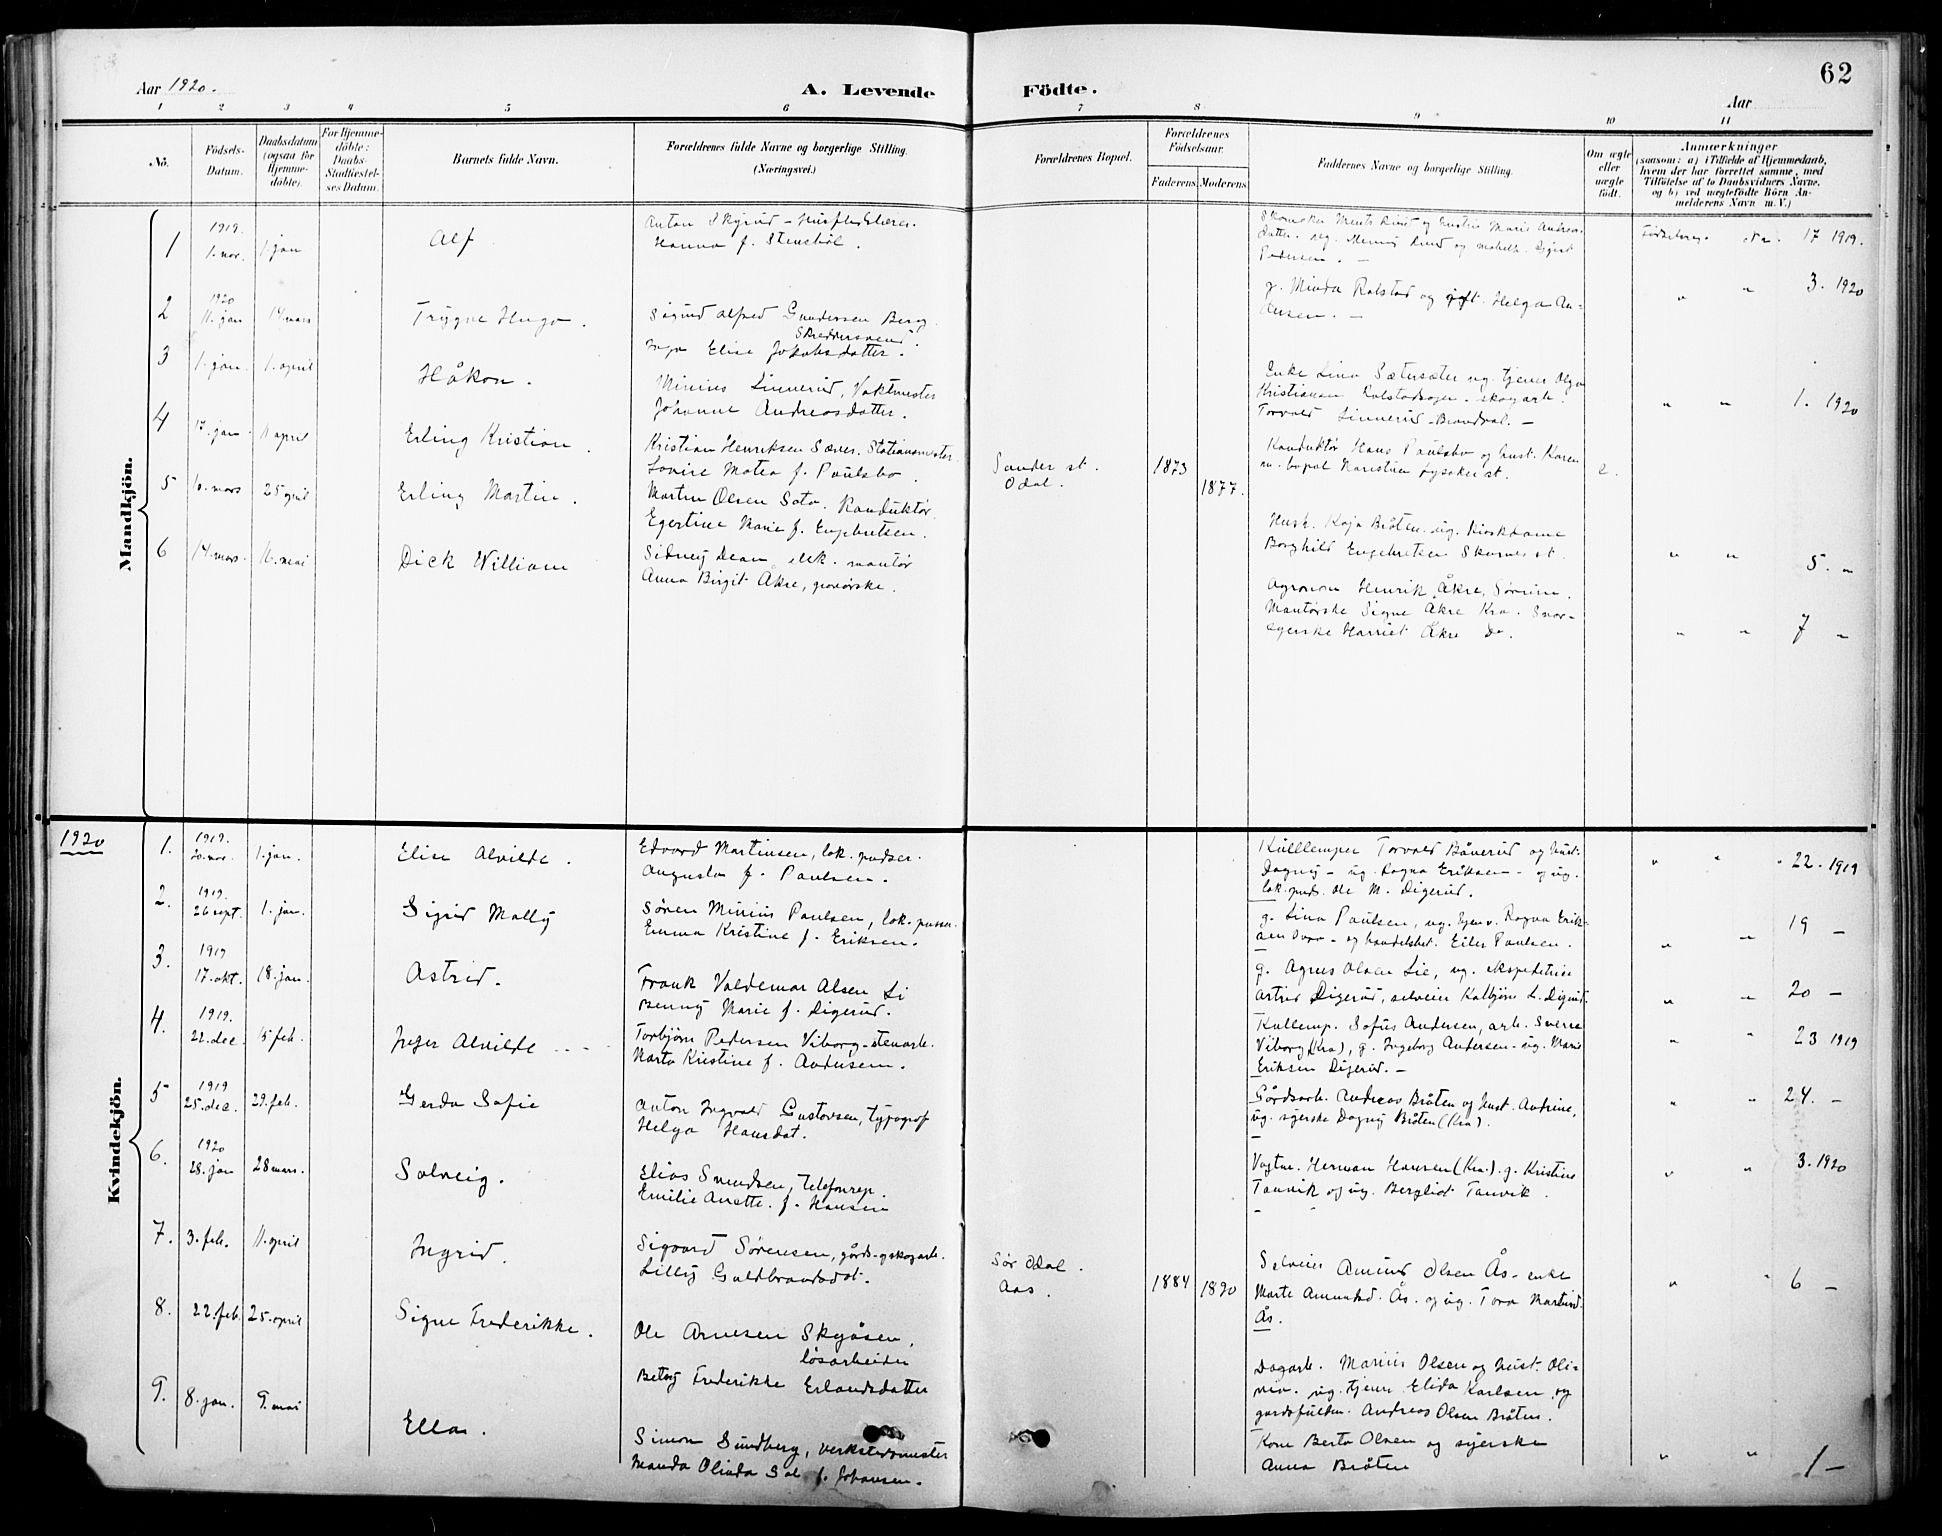 62
Aar 1920.
A. Levende Födte.
Aar
1 2 3 4 5 6 7 8 9 10 11
Nö.
Födsels-Datum.
Daabsdatum (ogsaa for Hjemme-döbte).
For Hjemme-döbte: Daabs-Stadfæstel-ses Datum.
Barnets fulde Navn.
Forældrenes fulde Navne og borgerlige Stilling. (Næringsvei.)
Forældrenes Bopæl.
Forældrenes Födselsaar.
Faderens Moderens
Faddernes Navne og borgerlige Stilling.
Om ægte eller uægte födt.
Anmærkninger
(saasom: a) i Tilfælde af Hjemmedaab, hvem der har forrettet samme, med Tilföielse af to Daabsvidners Navne, og b) ved uægtefödte Börn An-melderens Navn m. V.)
Mandkjön.
1 1919. 1. nov. 1. jan Alf
Anton
Hanna f.
17 1919.
2 1920 11. jan 14 mars Trygve Hugo.
Sigurd Alfred Gundersen Berg
Inga Elise Jakobsdatter.
g. Minda Rolstad og gift. Helga An-
3. 1920
3 1. jan. 1. april Håkon.
Minius Linnerud, Vaktmester
Johanne Andreasdatter.
Enke Lina Sætersæter ug. tjener Olga
Kristiansen
Torvald Linnerud - Brandval. -
" " 1. 1920
4 17. jan 11 april Erling Kristian.
Kristian Henriksen Sæves. Stationsmester.
Lovise Matea f. Paulsbo.
Sander st.
Odal.
1873 1877.
Konduktör Hans Paulsbo og hust. Karen
2.
5 10. mars 25 april Erling Martin.
Martin Olsen Sato. Konduktör
Egertine Marie f. Engebretsen.
Husk. Kaja Bråten. ug. Kioskdame
Borghild Engebretsen Skarnes st.
" " 5. "
6 14. mars. 16. mai Dick William
Sidney Dean, elek. montör
Anna Birgit Åkre, guvörske.
Agronom Henrik Åkre,
Signe Åkre Kra.
Harriet Åkre Do.
" " 7 "
1920
Kvindekjön.
1. 1919. 20. nov. 1. jan. Elise Alvilde.
Edvard Martinsen, lok. pudser.
Augusta f. Paulsen.
Kullemper Torvald Båverud og hust.
Dagny - ug. Ragna Eriksen - og ug.
lok. puds. Ole M. Digerud.
" " " 22. 1919
2. 1919. 26 sept. 1. jan. Sigrid Mally
Sören Minius Paulsen, lok. pusser
Emma Kristine f. Eriksen.
g. Lina Paulsen, ug. tjen. Ragna Erik-
sen - og handelsbet. Eiler Paulsen.
" " 19 -
3. 1919 17. okt. 18. jan. Astrid.
Frank Valdemar Olsen Li
Benny Marie f. Digerud.
g. Agnes Olsen Lie, ug. ekspeditrise
Astrid Digerud, selveier Kolbjörn L. Digerud.
" " 20 -
4. 1919. 22. dec. 15 feb. Inger Alvilde
Torbjörn Pedersen Viborg - stenarb.
Marta Kristine f. Andersen.
Kullemp. Sofus Andersen, arb. Sverre
Viborg (Kra), g. Ingeborg Andersen - ug. Marie
Eriksen Digerud. -
" " 23 1919
5 1919 25. dec. 29. feb. Gerda Sofie
Anton Ingvald Gustavsen, typograf
Helga Hansdat.
Gårdsarb. Andreas Bråten og hust. Andrine,
ug. syerske Dagny Bråten (Kra).
" " 24. -
6. 1920 28. jan 28 mars. Solveig.
Elias Svendsen, telefonrep.
Emilie Anette f. Hansen
Vogtm. Herman Hansen (Kra). g. Kristine
Tanvik og ug. Bergliot Tanvik.
" " 3. 1920
7. 3. feb. 11. april Ingrid.
Sigvard Sörensen, gårds- og skogarb.
Lilly Guldbrandsdat.
Sör Odal.
Aas.
1884 1890
Selveier Amund Olsen Ås - enke
Marte Amundsd. Ås. og ug. Tora Martinsd.
Ås.
" " 6 -
8. 22. feb. 25. april Signe Frederikke.
Ole Arnesen Skyåsen,
lösarbeider
Betsy Frederikke Erlandsdatter
Dagarb. Marius Olsen og hust. Oli-
via. ug. tjener Elida Karlsen og
Andreas Olsen Bråten.
9. 8. jan. 9. mai Ella.
Simon Sundberg, verkstedmester
Manda Olinda f. Johansen.
Kone Berta Olsen og syerske
Anna Bråten
" " 1 -